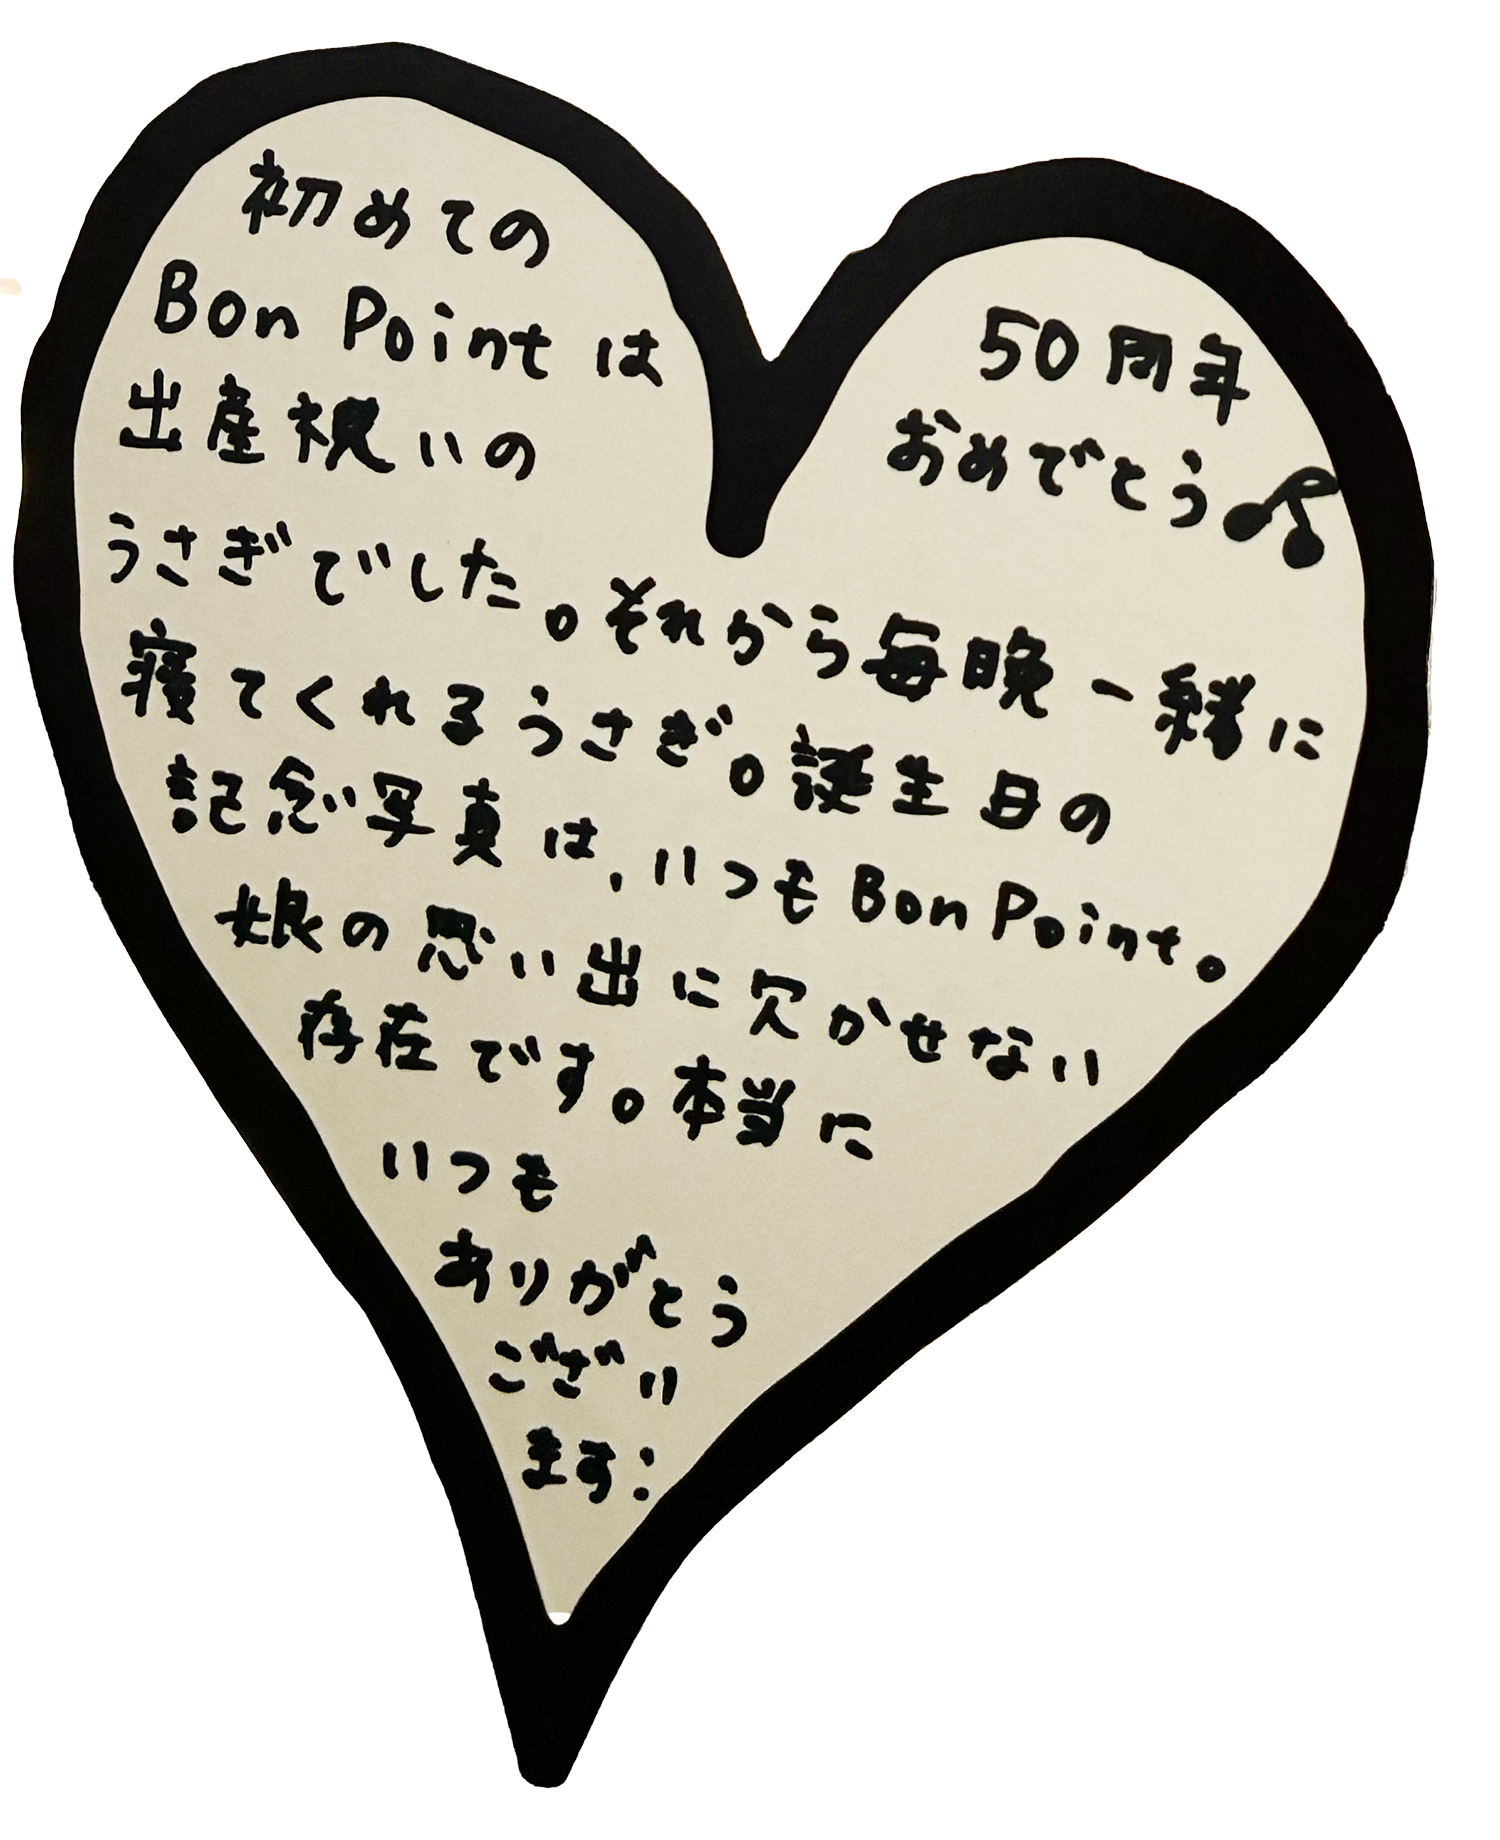 初めての
Bon Point は
出産祝いの
50周年
おめでとう♪
うさぎでした。それから毎晩一緒に
寝てくれるうさぎ。誕生日の
記念写真は,いつもBon Point。
娘の思い出に欠かせない
存在です。本当に
いつも
ありがとう
ござい
ます: